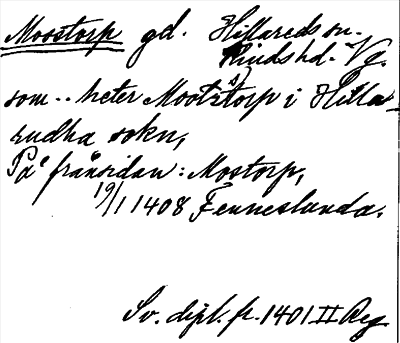 Moostorp gd. Hillareds sn.
Kinds hd. Vg.
som .. heter Mootzstorp i Hilla-
rudha sokn,
På frånsidan: Mostorp,
19/1 1408 Fenneslunda.
Sv. dipl. fr. 1401 II Reg